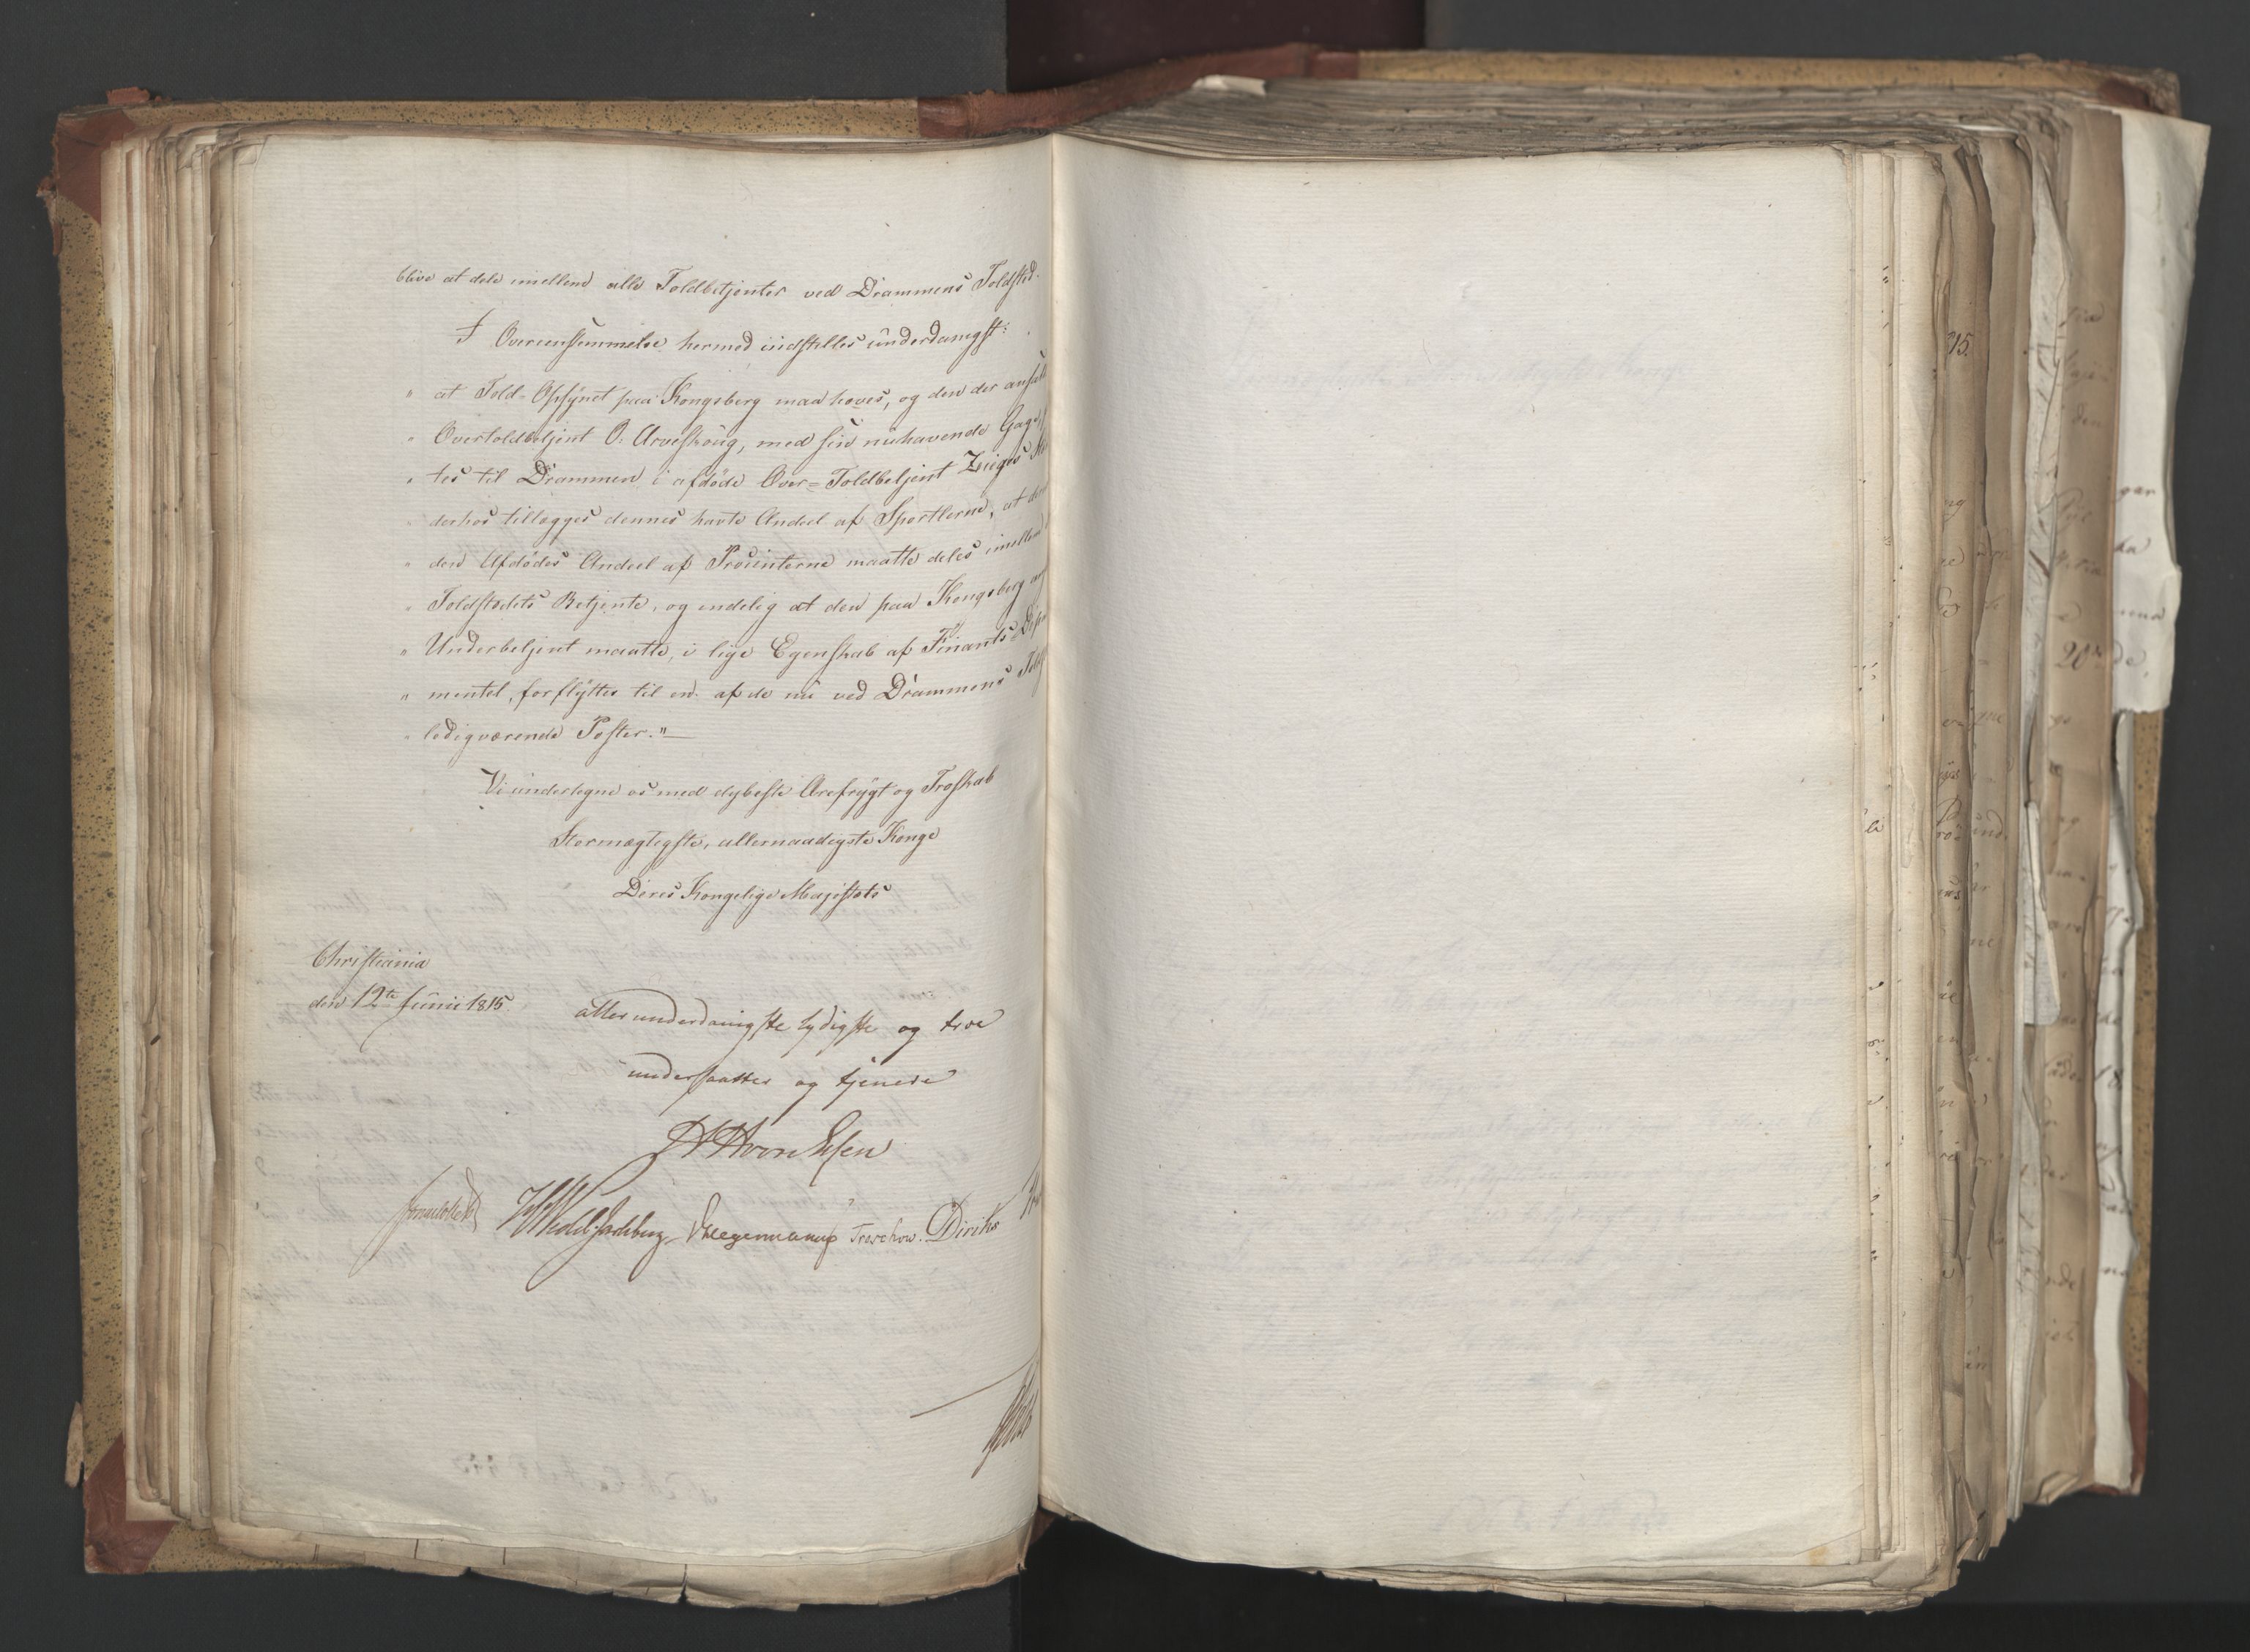 blive at dele imellem alle Toldbetjenter ved Drammens Toldsted.
I Overeensstemmelse hermed indstilles underdanigst:
" at Told-Opsÿnet paa Kongsberg maa hæves, og den der ansatte
" Overtoldbetjent O: Arveskoug, med sin nuhavende Gage,
" tes til Drammen i afdöde Over=Toldbetjent
" derhos tillægges dennes havte Andeel af Sportlerne, at
" den Afdödes Andeel af Prov̈enterne maatte deles imellem
" Toldstedets Betjente, og endelig at den paa Kongsberg
" Underbetjent maatte, i lige Egenskab af Finants-Depar
" mentet, forflÿttes til en af de nu ved Drammens Told
" ledigværende Poster."
Vi undertegne os med dybeste Ærefrÿgt og Troskab
Stormægtigste, allernaadigste Konge
Deres Kongelige Majestæts
Christiania
den 12te Junii 1815.
allerunderdanigste lydigste og troe
undersaatter og tjenere
von Essen
Sommelholdt Wedel Jarlsberg Hegermann Treschow. Diriks